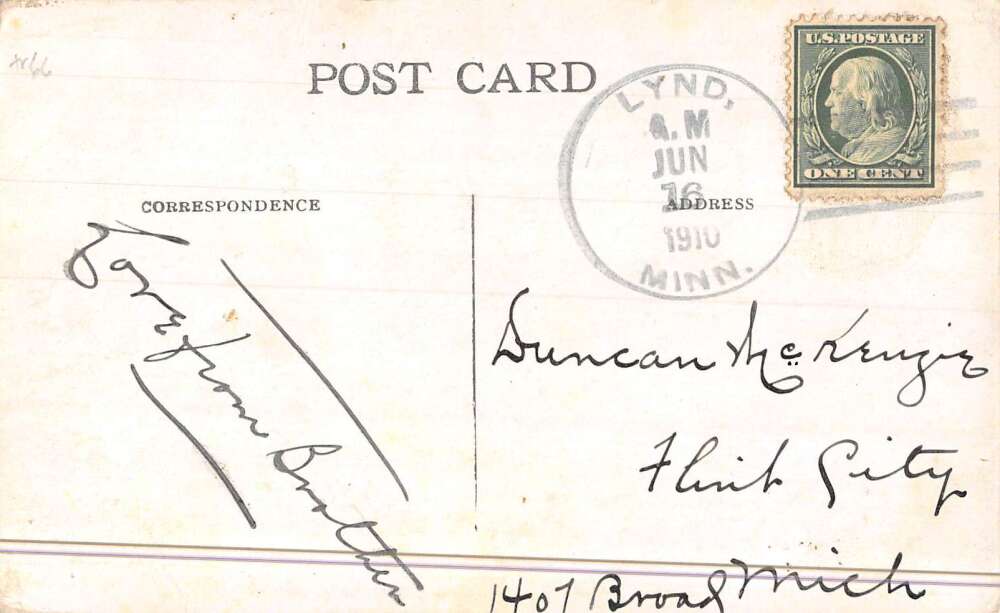 POST CARD
U.S. POSTAGE
ONE CENT
LYND,
A.M
JUN
16
1910
MINN.
CORRESPONDENCE
ADDRESS
Love from Brother
Duncan McKenzie
Flint City
Mich
1407 Broad